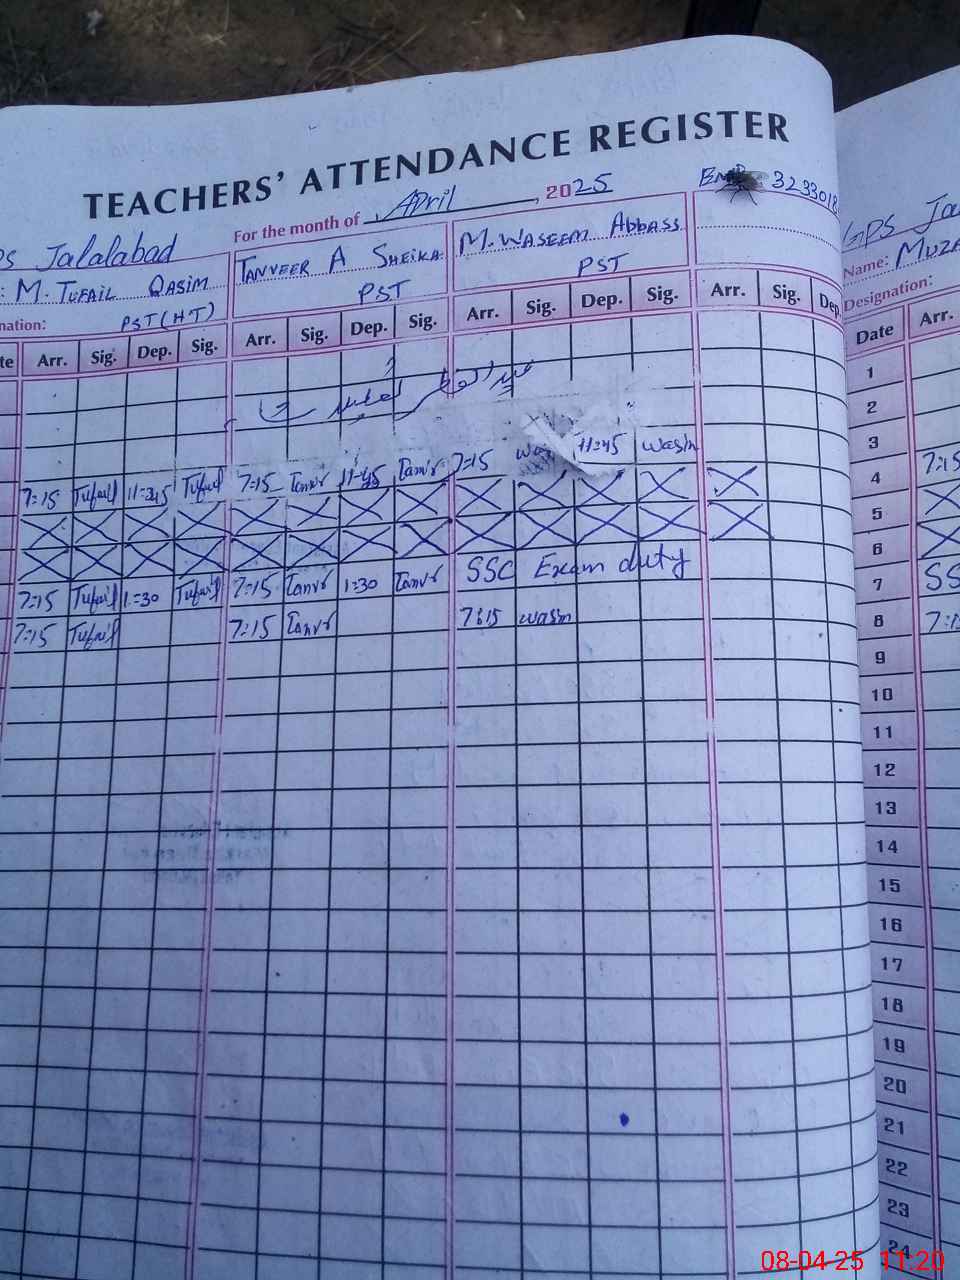 TEACHERS' ATTENDANCE REGISTER
For the month of April, 2025
3233018
PS Jalalabad
GPS Ja
: M. TUFAIL QASIM
TANVEER A SHEIKA
M. WASEEM ABBASS
Name: MUZA
nation: PST (HT)
PST
PST
Designation:
te Arr. Sig. Dep. Sig. Arr. Sig. Dep. Sig. Arr. Sig. Dep. Sig. Arr. Sig. Dep. Date Arr.
1
2
3
7:15 Tufail 11=45 Tufail 7:15 Tanvr 11=45 Tanvr 7:15 11=45 wasm 4 7:15
5
6
7:15 Tufail 1=30 Tufail 7:15 Tanvr 1:30 Tanvr SSC Exam duty 7 SS
7:15 Tufail 7:15 Tanvr 7:15 wasm 8 7:1
9
10
11
12
13
14
15
16
17
18
19
20
21
22
23
24
08-04-25 11:20